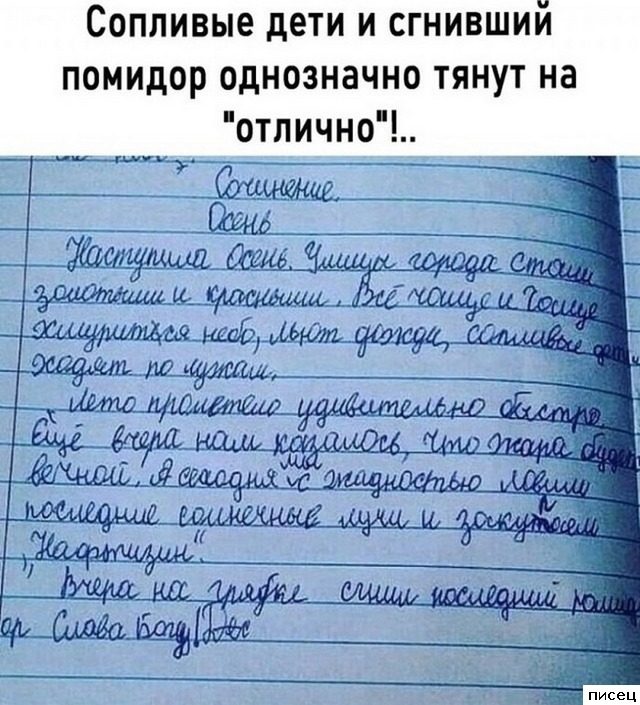 Сопливые дети и сгнивший
помидор однозначно тянут на
"отлично"!..
Сочинение.
Осень
Наступила Осень. Улицы города стали
золотыми и красными. Всё чаще и
хмурится небо, льют дожди, сопливые дети
ходят по лужам.
Лето пролетело удивительно быстро.
Ещё вчера нам казалось, что жара будет
вечной. А сегодня мы с жадностью ловим
последние солнечные лучи и
"Нафтизин".
Вчера на грядке сгнил последний помид
ор Слава Богу!
писец